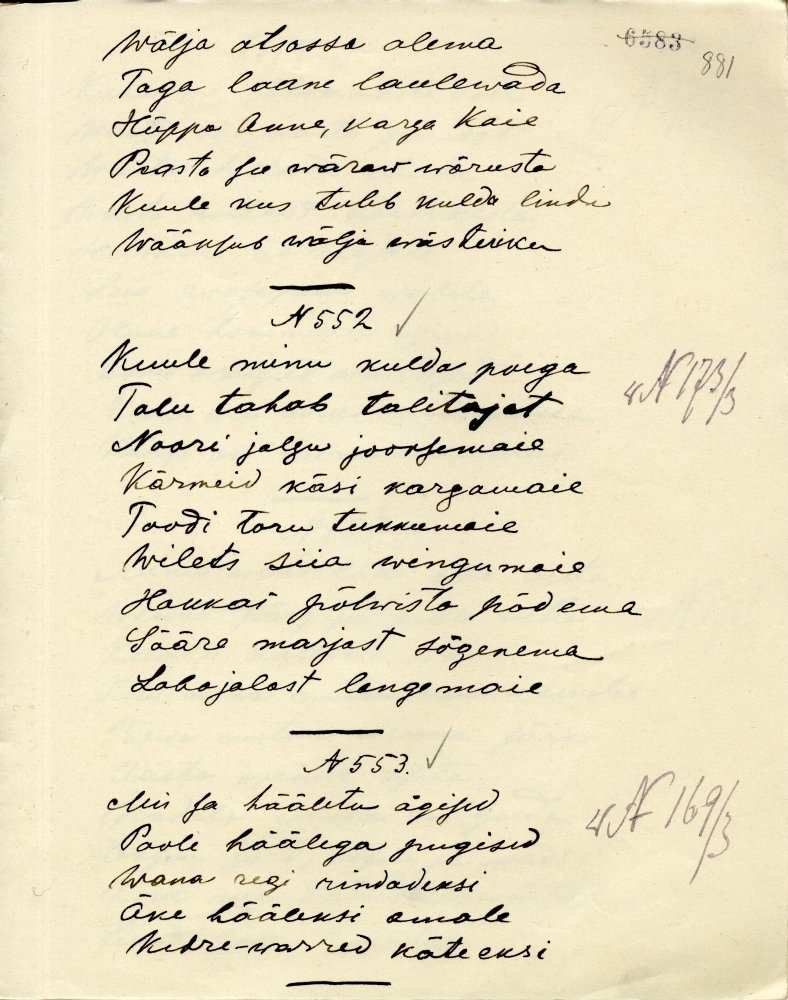 6583
881
Wälja otsassa olema
Taga laane laulewada
Hüppa Anne, karga Kaie
Peasta see wäraw wärusta
Kuule kus tuleb kulda lindu
Wäänsub wälja wästerikku
N 552
Kuule minu kulda poega
N 173/3
Talu tahab talitajat
Noori jalgu jooksemaie
Kärmeid käsi kargamaie
Toodi toru tukkumaie
Wilets siia wingumaie
Hakkas põlwista põdema
Sääre marjast sõgenema
Labajalast langemaie
N 553.
Mis sa hääletu ägised
N 169/3
Poole häälega pugised
Wana regi rindadeksi
Äke hääleksi omale
Kedre-warred käte eksi